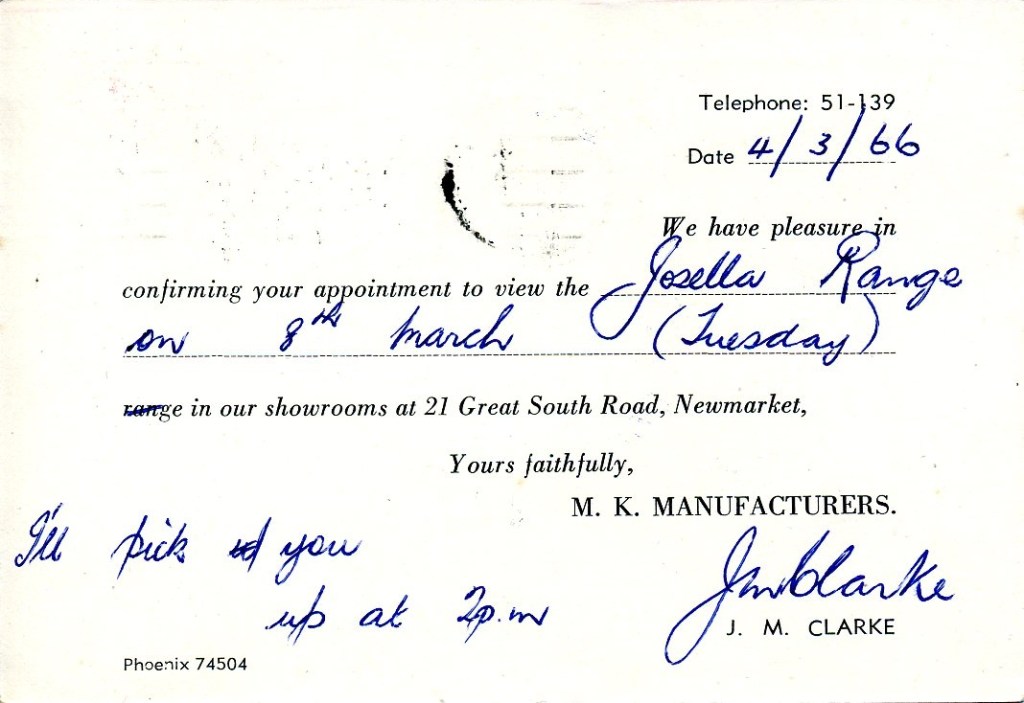 Telephone: 51-139
Date 4/3/66
We have pleasure in
confirming your appointment to view the Josella Range
on 8th March (Tuesday)
range in our showrooms at 21 Great South Road, Newmarket,
Yours faithfully,
M. K. MANUFACTURERS.
I'll pick you
up at 2p.m
JMClarke
J. M. CLARKE
Phoenix 74504